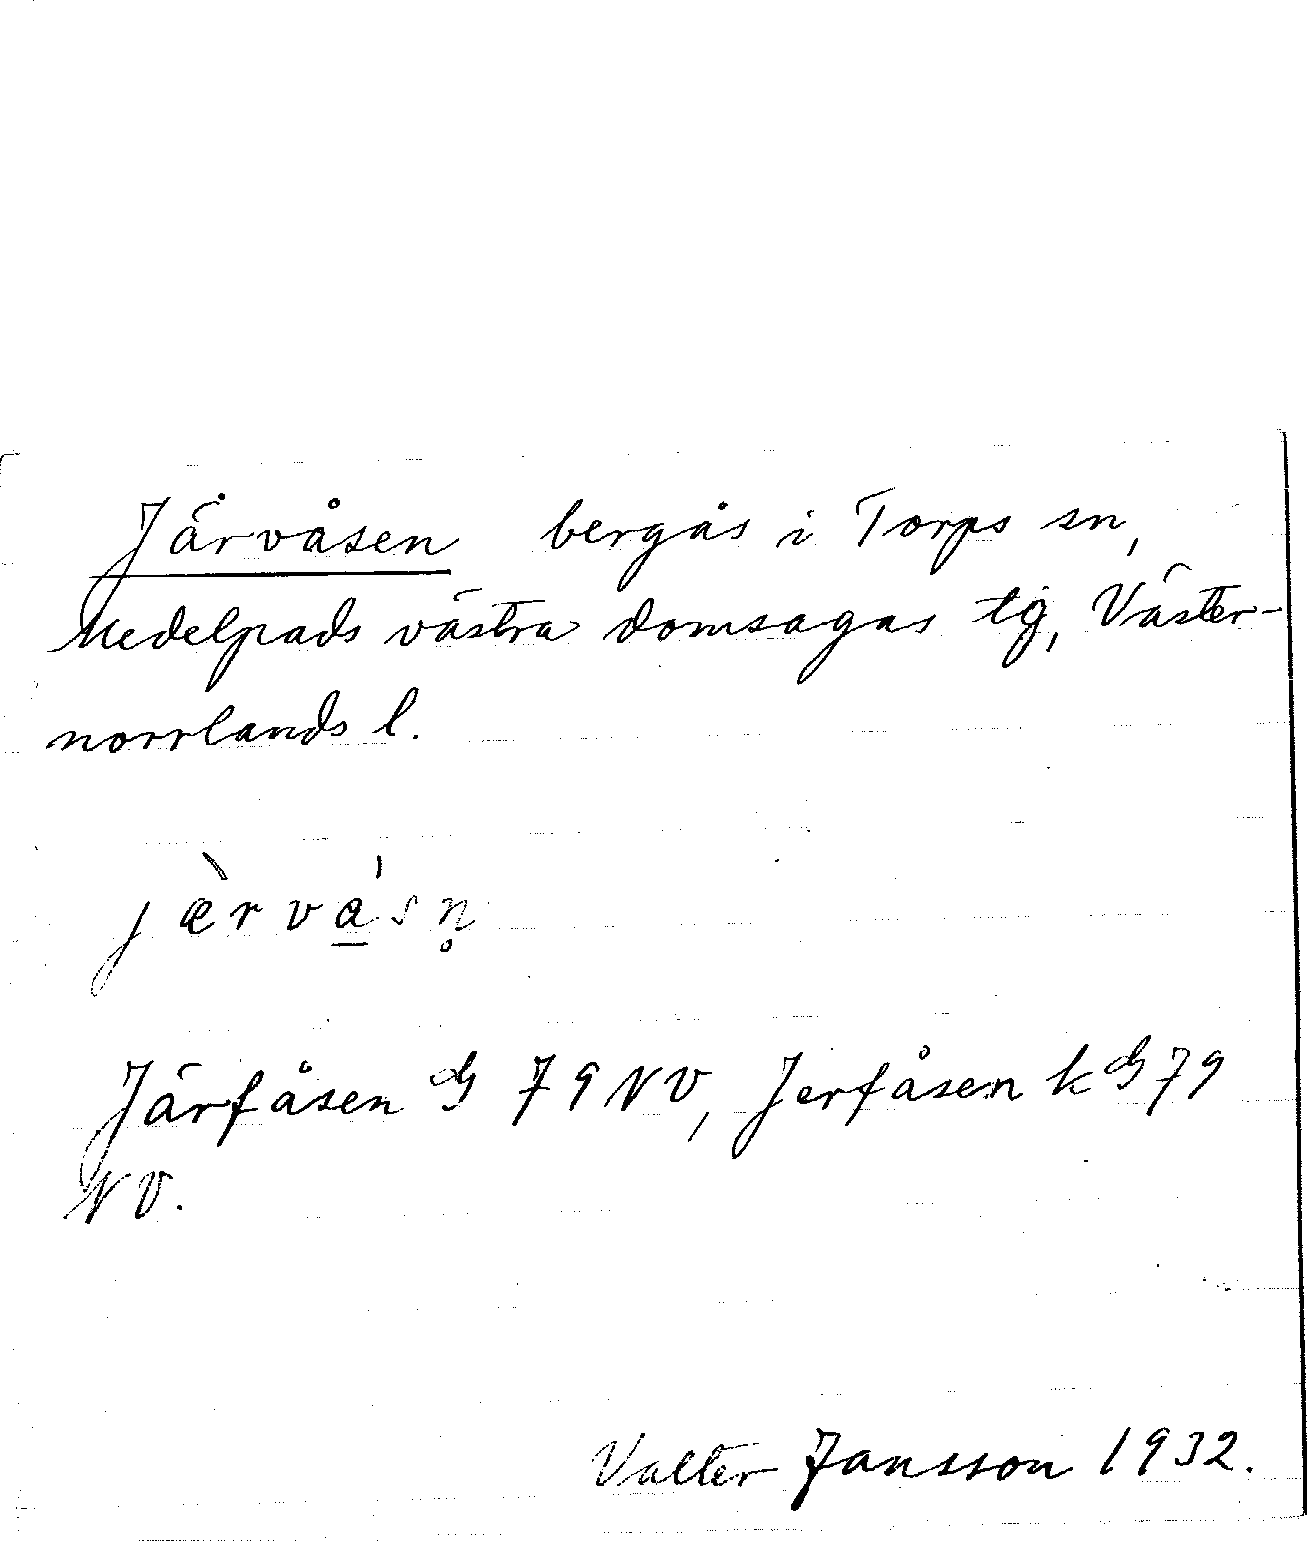 Järvåsen bergås i Torps sn,
Medelpads västra domsagas tg, Väster-
norrlands l.
jæ̀rvá̲sn̥
Järfåsen G 79 NV, Jerfåsen k G 79
NV.
Valter Jansson 1932.